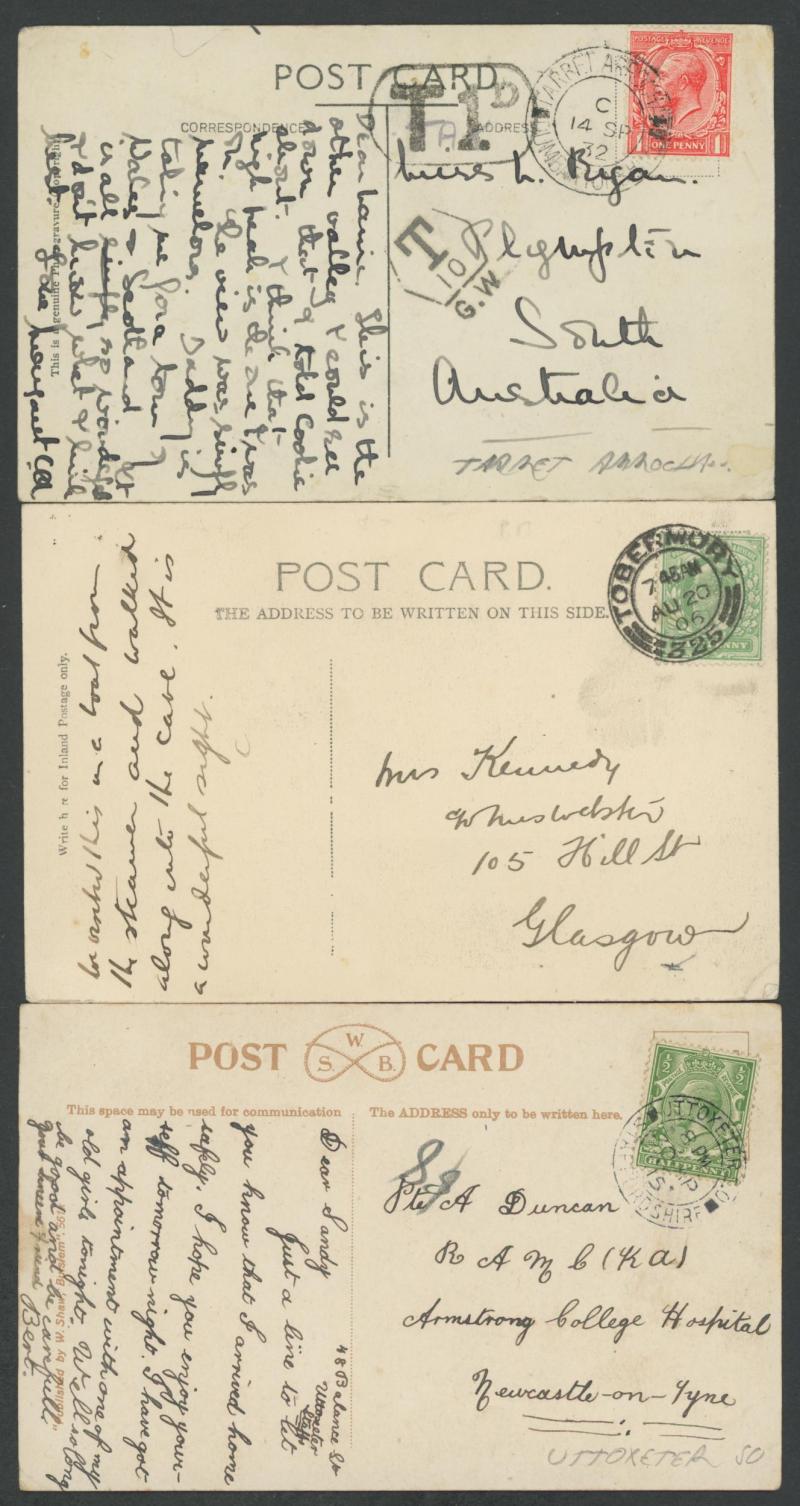 POST CARD
T 1D
CORRESPONDENCE
ADDRESS
TARBET ARROCHAR
DUMBARTONSHIRE
C
14 SP
32
POSTAGE REVENUE
ONE PENNY
1
1
T
10
G.W
L. Ryan.
Plympton
South
Australia
TARBET ARROCHAR
Dear This is the
other valley I could see
down that I told Cookie
about. I think that
high peak is the one I was
on. The view was simply
marvelous. Daddy is
taking me for a tour of
Wales & Scotland It
is all simply so wonderful
I don't know what I like
best. Love Margaret
This is a Genuine
POST CARD.
THE ADDRESS TO BE WRITTEN ON THIS SIDE.
TOBERMORY
7 45 AM
AU 20
06
325
PENNY
Write here for Inland Postage only.
in a boat from
the steamer and walked
along into the cave. It is
a wonderful sight.
Mrs Kennedy
105 Hill St
Glasgow
POST CARD
S. W. B.
This space may be used for communication
The ADDRESS only to be written here.
½
½
HALFPENNY
UTTOXETER S.O.
STAFFORDSHIRE
8 PM
SP
15
48 Balance St
Uttoxeter
Staffs
Dear Sandy
Just a line to let
you know that I arrived home
safply. I hope you enjoy your-
self tomorrow night. I have got
an appointment with one of my
old girls tonight. Well so long
be good and be carefull
your friend Bert.
Published by W. Shaw, Burslem
Pte A Duncan
R A M C (KA)
Armstrong College Hospital
Newcastle-on-Tyne
UTTOXETER SO